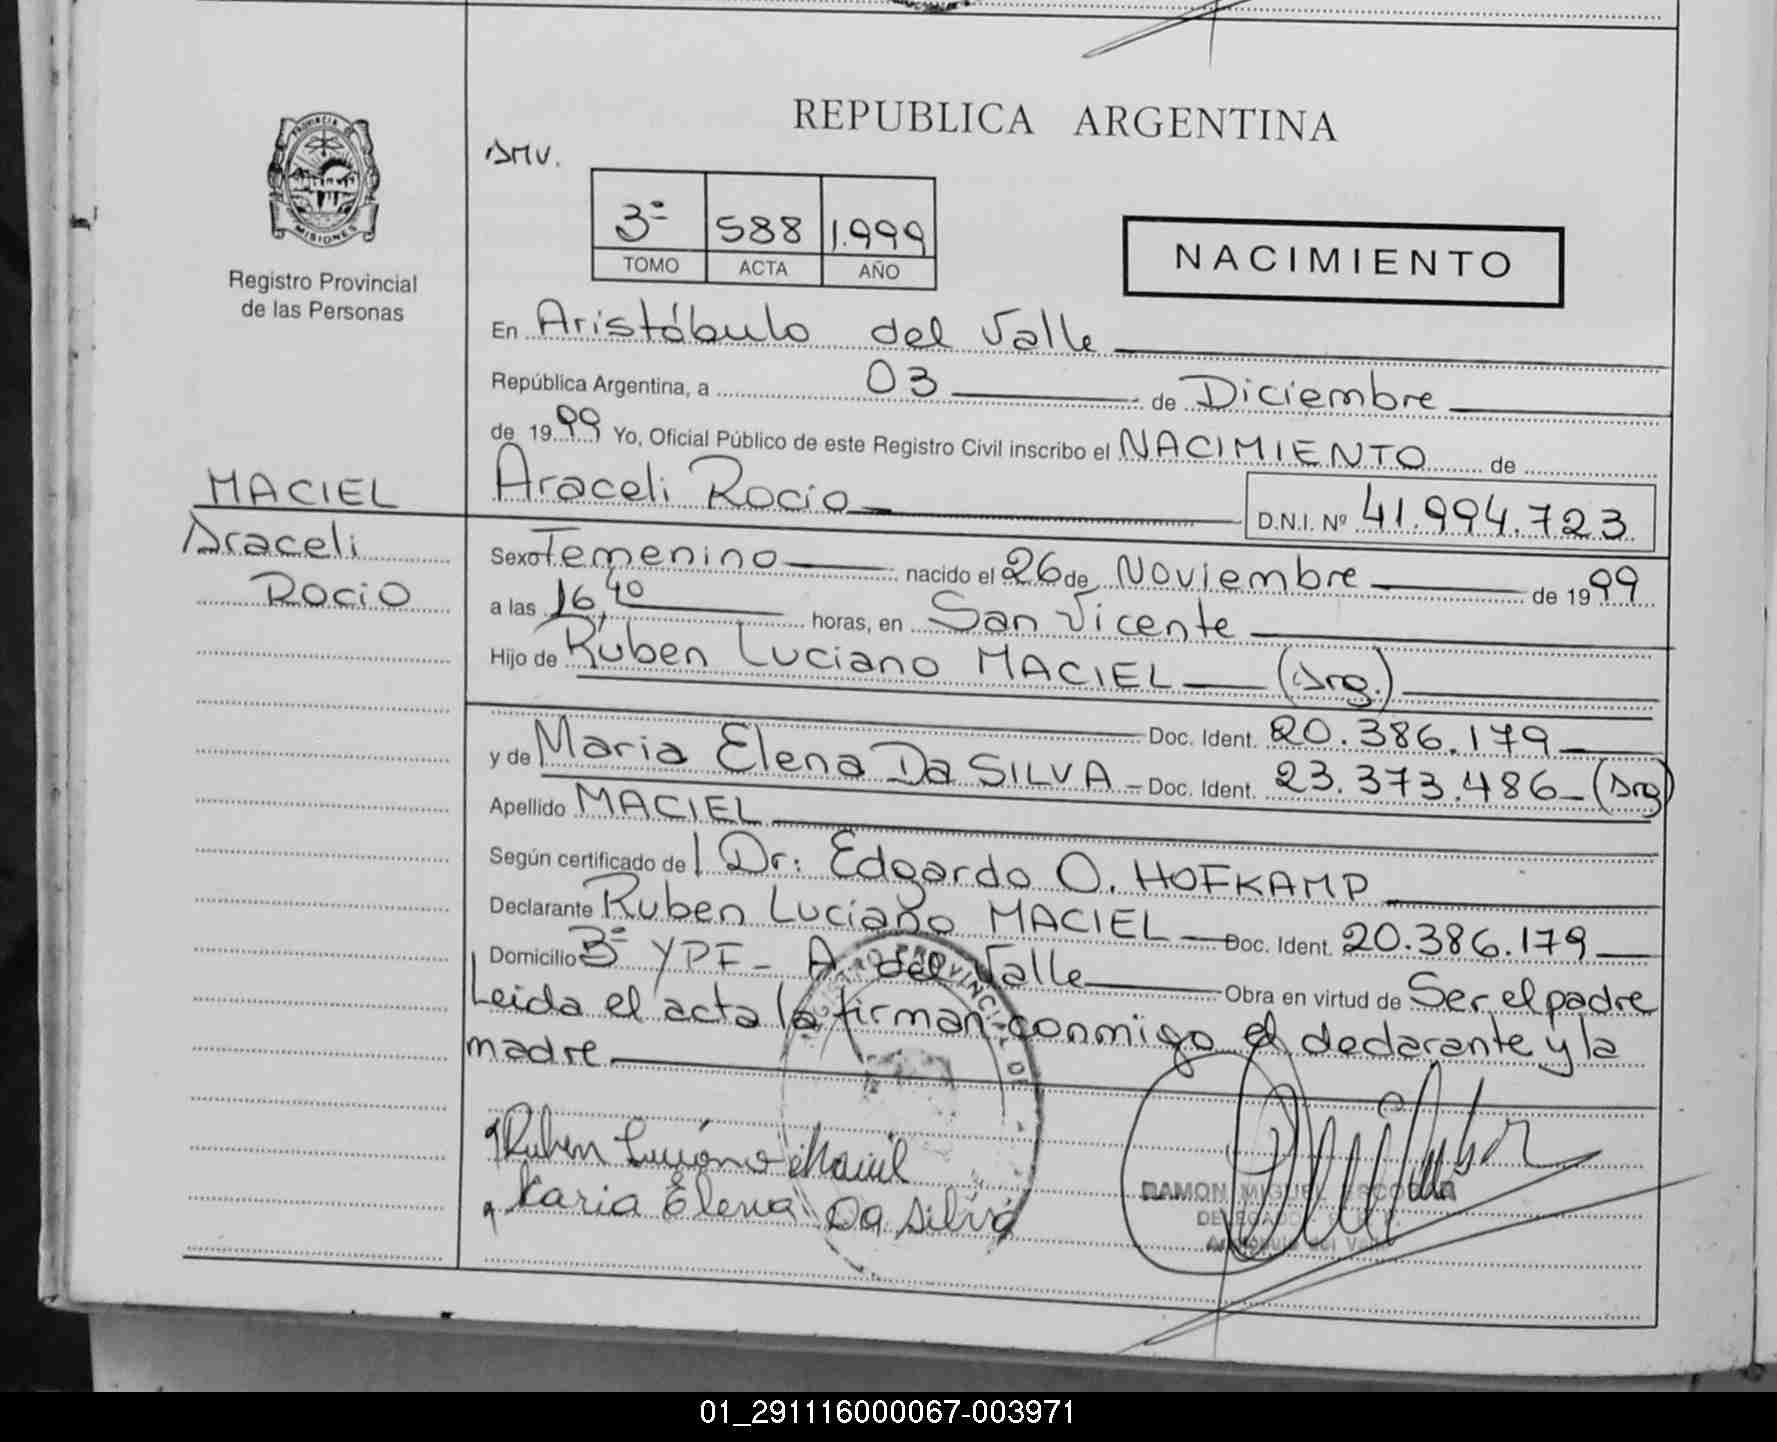 REPUBLICA ARGENTINA
PROVINCIA DE
MISIONES
Registro Provincial
de las Personas
3º 588 1.999
TOMO ACTA AÑO
NACIMIENTO
En Aristóbulo del Valle
República Argentina, a 03 de Diciembre
de 1999 Yo, Oficial Público de este Registro Civil inscribo el NACIMIENTO de
MACIEL
Araceli
Rocio
Araceli Rocio D.N.I. Nº 41.994.723
Sexo Femenino nacido el 26 de Noviembre de 1999
a las 16,40 horas, en San Vicente
Hijo de Ruben Luciano MACIEL (Arg.)
Doc. Ident. 20.386.179
y de Maria Elena Da SILVA Doc. Ident. 23.373.486 (Arg)
Apellido MACIEL
Según certificado de Dr: Edgardo O. HOFKAMP
Declarante Ruben Luciano MACIEL Doc. Ident. 20.386.179
Domicilio 3º YPF - A. del Valle Obra en virtud de Ser el padre
Leida el acta la firman conmigo el declarante y la
madre
Ruben Luciano Maciel
Maria Elena Da Silva
RAMON MIGUEL ESCOBAR
DELEGADO
Aristobulo del Valle
01_291116000067-003971